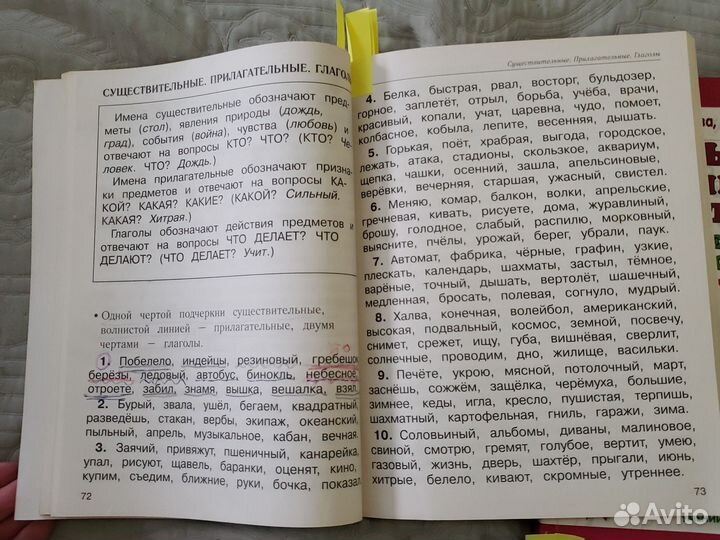 СУЩЕСТВИТЕЛЬНЫЕ. ПРИЛАГАТЕЛЬНЫЕ. ГЛАГОЛЫ
Имена существительные обозначают пред-
меты (стол), явления природы (дождь,
град), события (война), чувства (любовь) и
отвечают на вопросы КТО? ЧТО? (КТО? Че-
ловек. ЧТО? Дождь.)
Имена прилагательные обозначают призна-
ки предметов и отвечают на вопросы КА-
КОЙ? КАКАЯ? КАКИЕ? (КАКОЙ? Сильный.
КАКАЯ? Хитрая.)
Глаголы обозначают действия предметов и
отвечают на вопросы ЧТО ДЕЛАЕТ? ЧТО
ДЕЛАЮТ? (ЧТО ДЕЛАЕТ? Учит.)
• Одной чертой подчеркни существительные,
волнистой линией — прилагательные, двумя
чертами — глаголы.
1. Побелело, индейцы, резиновый, гребешок,
берёзы, ледовый, автобус, бинокль, небесное,
отроете, забил, знамя, вышка, вешалка, взял.
2. Бурый, звала, ушёл, бегаем, квадратный,
разведёшь, стакан, вербы, экипаж, океанский,
пыльный, апрель, музыкальное, кабан, вечная.
3. Заячий, привяжут, пшеничный, канарейка,
упал, рисуют, щавель, баранки, оценят, кино,
купим, съедим, ближние, руки, бочка, показал.
72
Существительные. Прилагательные. Глаголы
4. Белка, быстрая, рвал, восторг, бульдозер,
горное, заплетёт, отрыл, борьба, учёба, врачи,
красивый, копали, учат, царевна, чудо, помоет,
колбасное, кобыла, лепите, весенняя, дышать.
5. Горькая, поёт, храбрая, выгода, городское,
лежать, атака, стадионы, скользкое, аквариум,
щепка, чашки, осенний, зашла, апельсиновые,
верёвки, вечерняя, старшая, ужасный, свистел.
6. Меняю, комар, балкон, волки, апрельские,
гречневая, кивать, рисуете, дома, журавлиный,
брошу, голодное, слабый, распилю, морковный,
выясните, пчёлы, урожай, берег, убрали, паук.
7. Автомат, фабрика, чёрные, графин, узкие,
плескать, календарь, шахматы, застыл, тёмное,
варёные, точный, дышать, вертолёт, шашечный,
медленная, бросать, полевая, согнуло, мудрый.
8. Халва, конечная, волейбол, американский,
высокая, подвальный, космос, земной, посвечу,
снимет, срежет, ищу, губа, вишнёвая, сверлю,
солнечные, проводим, дно, жилище, васильки.
9. Печёте, укрою, мясной, потолочный, март,
заснёшь, сожжём, защёлка, черёмуха, большие,
зимнее, кеды, игла, кресло, пушистая, терпишь,
шахматный, картофельная, гниль, гаражи, зима.
10. Соловьиный, альбомы, диваны, малиновое,
свиной, смотрю, гремят, голубое, вертит, умею,
газовый, жизнь, дверь, шахтёр, прыгали, июнь,
хитрые, белело, кивают, скромные, утреннее.
73
Avito